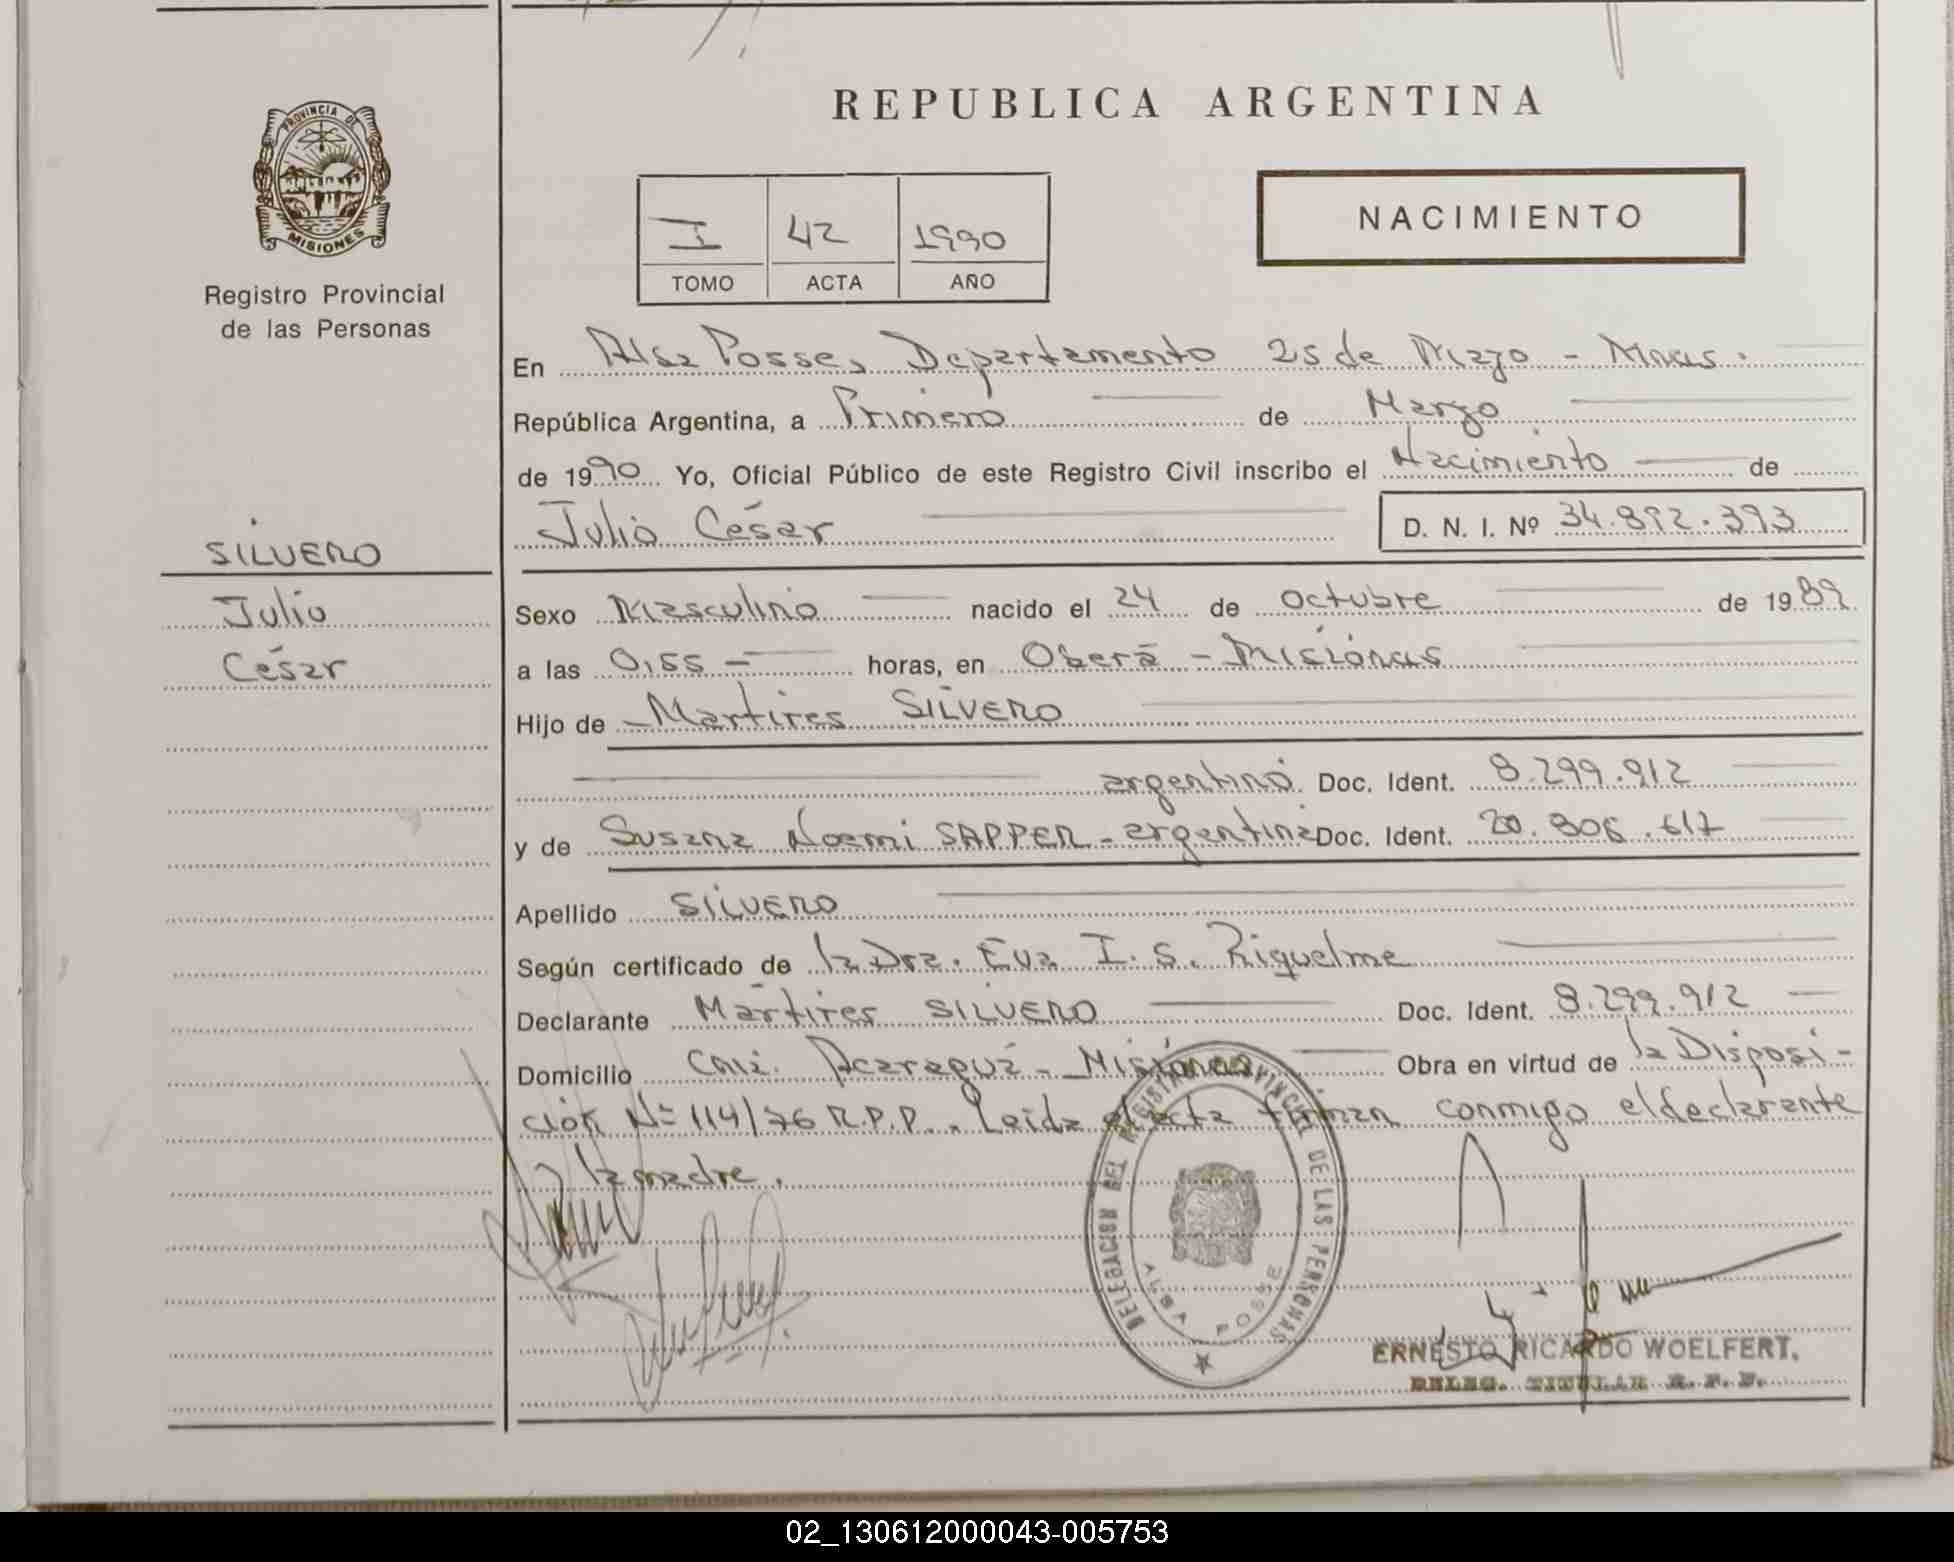 REPUBLICA ARGENTINA
PROVINCIA DE
MISIONES
Registro Provincial
de las Personas
I 42 1990
TOMO ACTA AÑO
NACIMIENTO
En Alba Posse, Departamento 25 de Mayo - Mnes.
República Argentina, a Primero de Marzo
de 1990 Yo, Oficial Público de este Registro Civil inscribo el Nacimiento de
Julio César D. N. I. Nº 34.892.393
SILVERO
Julio
César
Sexo Masculino nacido el 24 de Octubre de 1989
a las 0,55 - horas, en Oberá - Misiones
Hijo de Mártires SILVERO
argentino Doc. Ident. 8.299.912
y de Susana Noemi SAPPER - argentina Doc. Ident. 20.806.617
Apellido SILVERO
Según certificado de la Dra. Eva I. S. Riquelme
Declarante Mártires SILVERO Doc. Ident. 8.299.912
Domicilio Cnia. Acaraguá - Misiones Obra en virtud de la Disposi-
ción Nº 114/76 R.P.P.. Leída el acta firman conmigo el declarante
la madre.
DELEGACION DEL REGISTRO PROVINCIAL DE LAS PERSONAS
ALBA POSSE
ERNESTO RICARDO WOELFERT.
DELEG. TITULAR R. P. P.
02_130612000043-005753